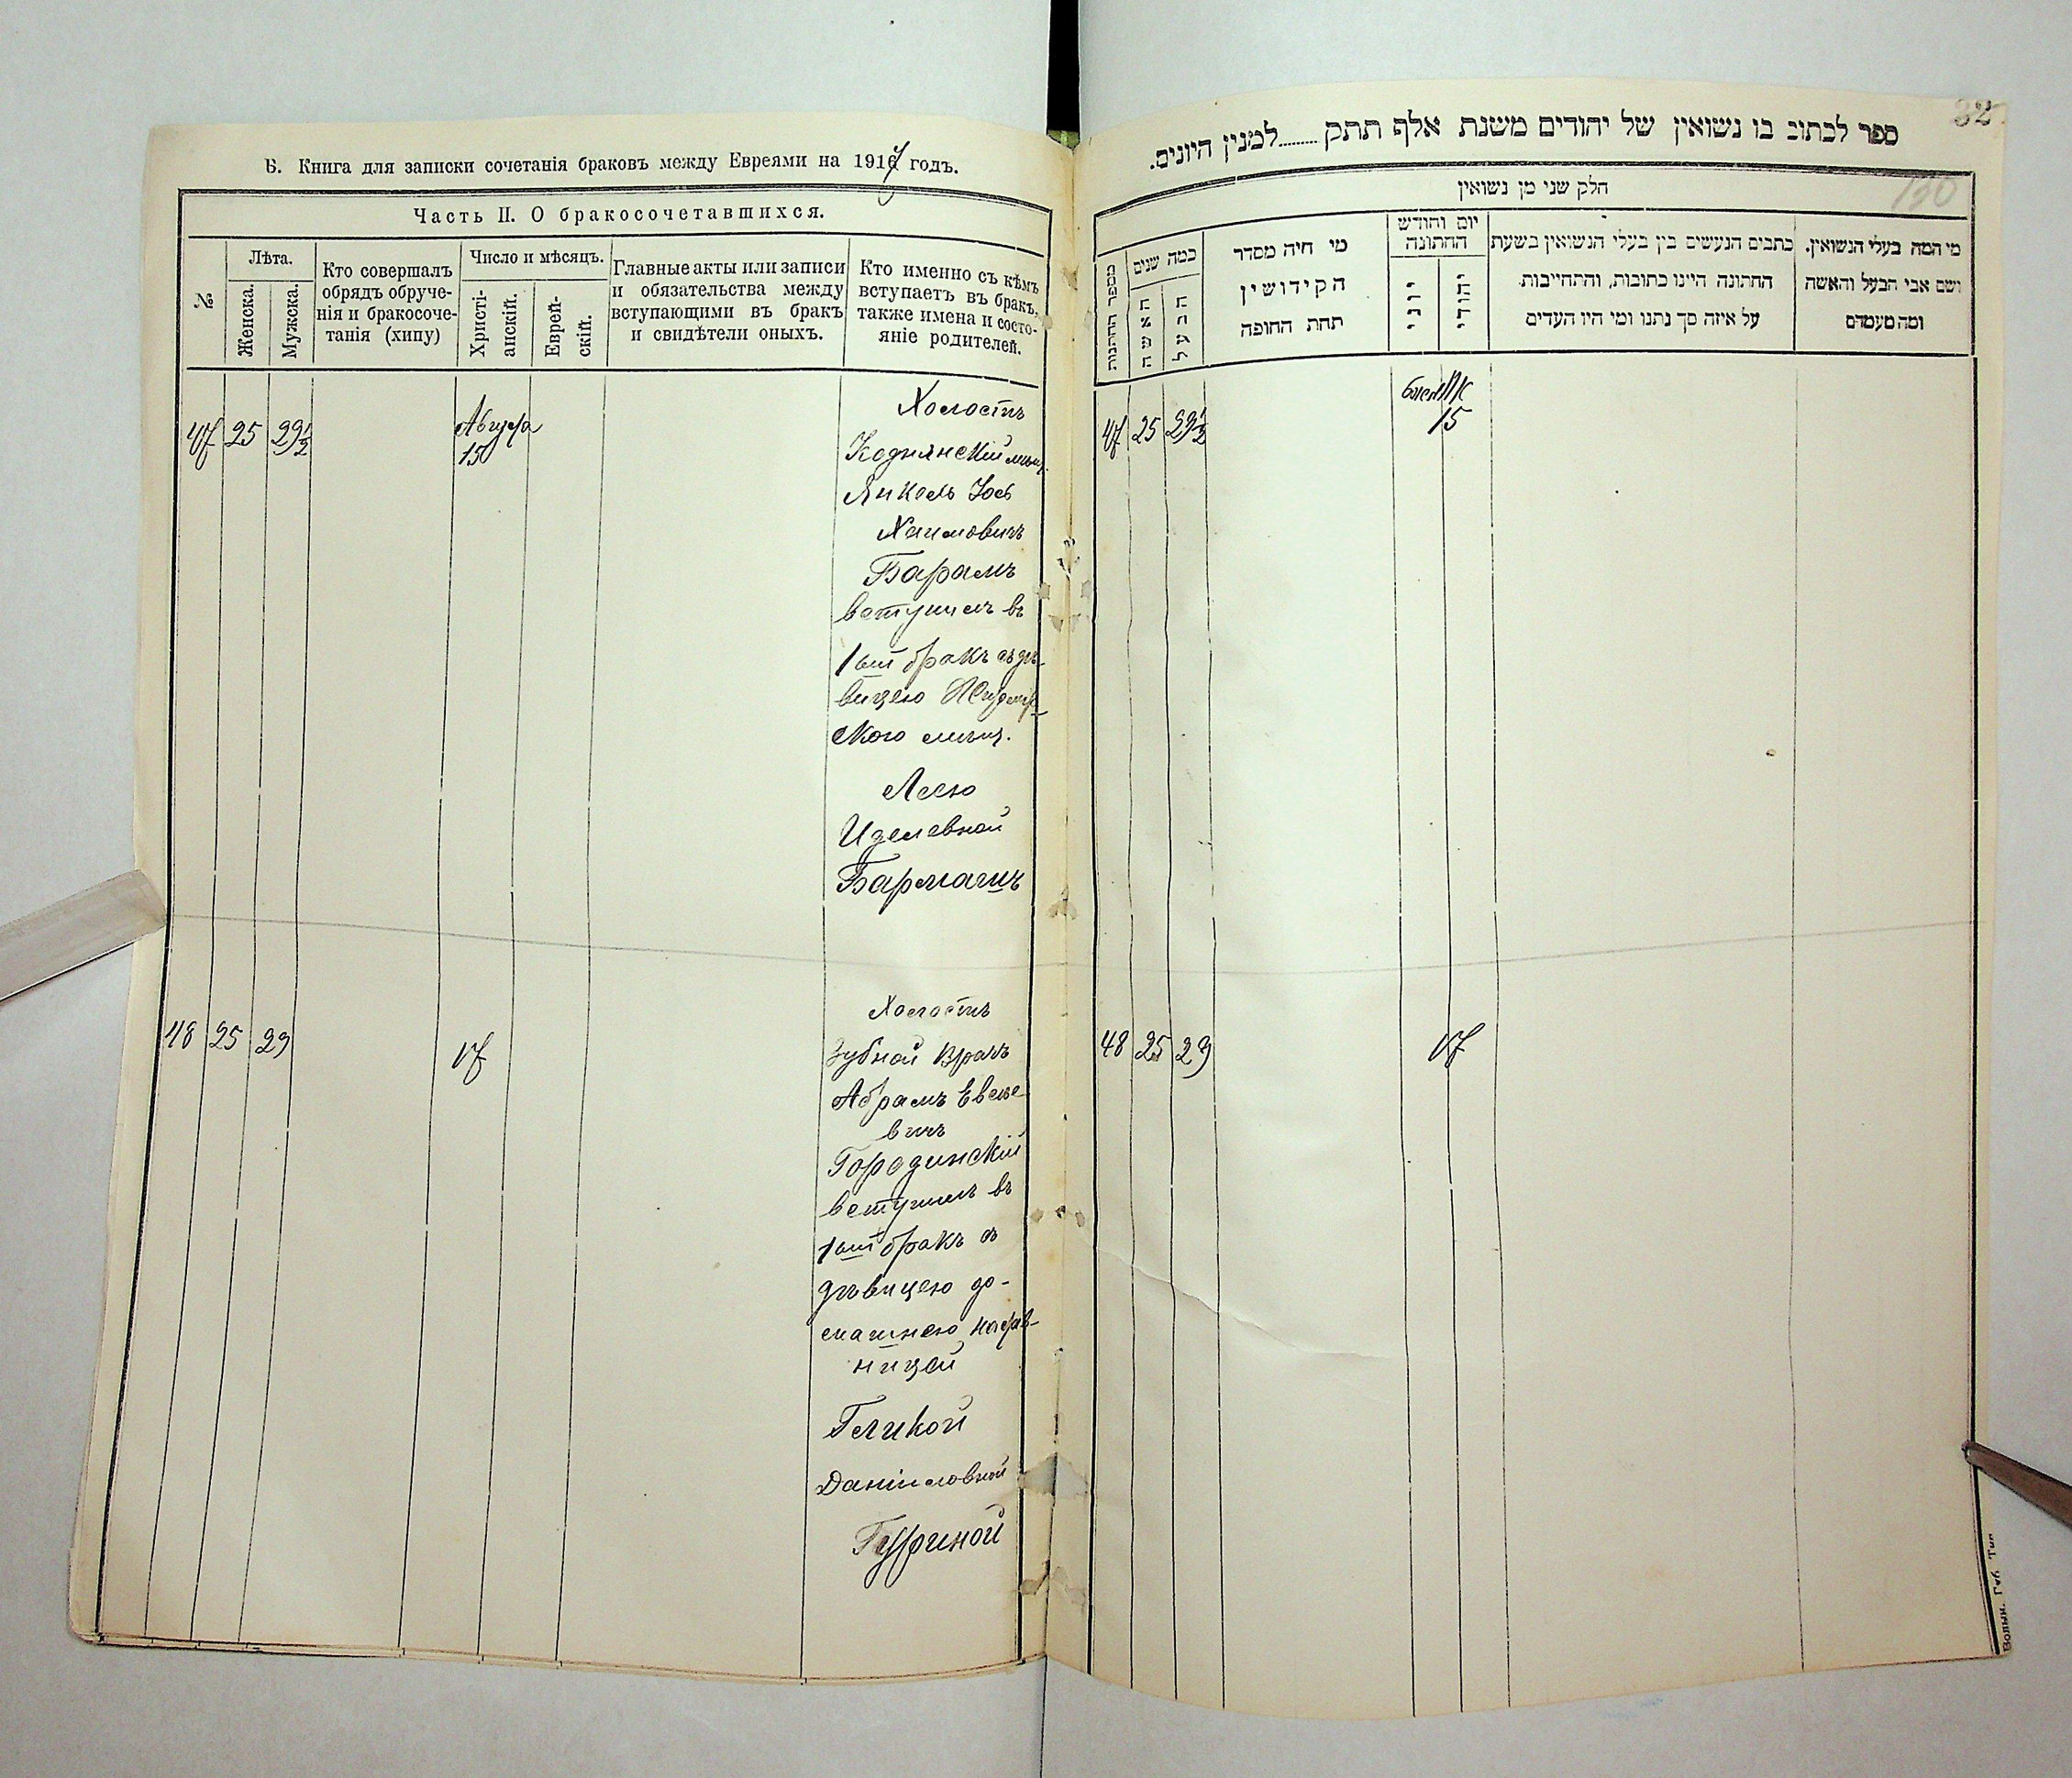 Б. Книга для записки сочетанія браковъ между Евреями на 1917 годъ.
Часть II. О бракосочетавшихся.
№
Лѣта.
Женска.
Мужска.
Кто совершалъ
обрядъ обруче-
нія и бракосоче-
танія (хипу)
Число и мѣсяцъ.
Христі-
анскій.
Еврей-
скій.
Главные акты или записи
и обязательства между
вступающими въ бракъ
и свидѣтели оныхъ.
Кто именно съ кѣмъ
вступаетъ въ бракъ,
также имена и состо-
яніе родителей.
47 25 29½
Августа
15
Холостъ
Коднянскій мѣщ.
Янкель Іось
Хаимовичъ
Барамъ
вступилъ въ
1ый бракъ съ дѣ-
вицею Житомір-
ского мѣщ.
Лею
Иделевной
Бармашъ
48 25 29
17
Холостъ
Зубной Врачъ
Абрамъ
вичъ
Городинскій
вступилъ въ
1ый бракъ съ
дѣвицею до-
машнею настав-
ницей
Геликой
Даніиловной
Гуфиной
ספר לכתוב בו נשואין של יהודים משנת אלף תתק.........למנין היונים.
32
190
חלק שני מן נשואין
מספר החתונות
כמה שנים
האשה
הבעל
מי היה מסדר
הקידושין
תחת החופה
יום וחודש
החתונה
יוני
יהודי
כתבים הנעשים בין בעלי הנשואין בשעת
החתונה היינו כתובות, והתחייבות
על איזה סך נתנו ומי היו העדים
מי המה בעלי הנשואין,
ושם אבי הבעל והאשה
ומה מעמדם
47 25 29½
15
48 25 29
17
Волын. Губ. Тип.